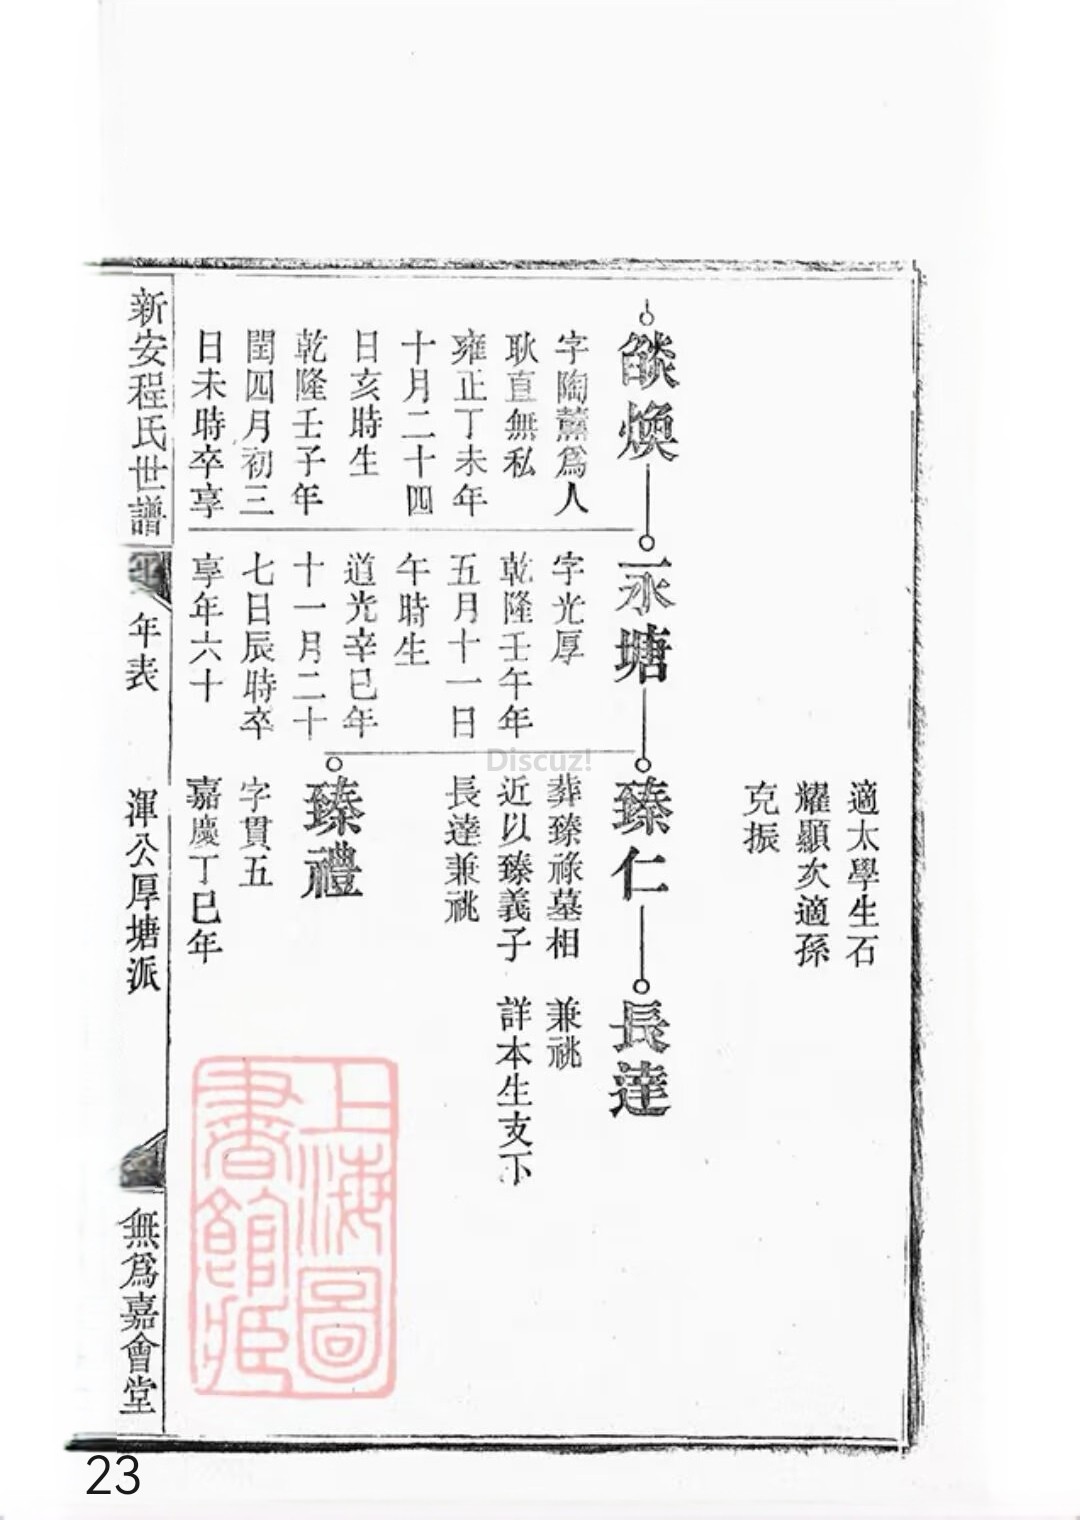 適太學生石
耀顯次適孫
克振
燄煥
字陶薰爲人
耿直無私
雍正丁未年
十月二十四
日亥時生
乾隆壬子年
閏四月初三
日未時卒享
永塘
字光厚
乾隆壬午年
五月十一日
午時生
道光辛巳年
十一月二十
七日辰時卒
享年六十
臻仁
葬臻祿墓相
近以臻義子
長達兼祧
長達
兼祧
詳本生支下
臻禮
字貫五
嘉慶丁巳年
新安程氏世譜
年表
渾公厚塘派
無爲嘉會堂
上海圖
書館藏
Discuz!
23